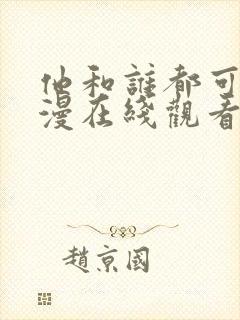 他和誰都可
漫在綫觀看
趙京國